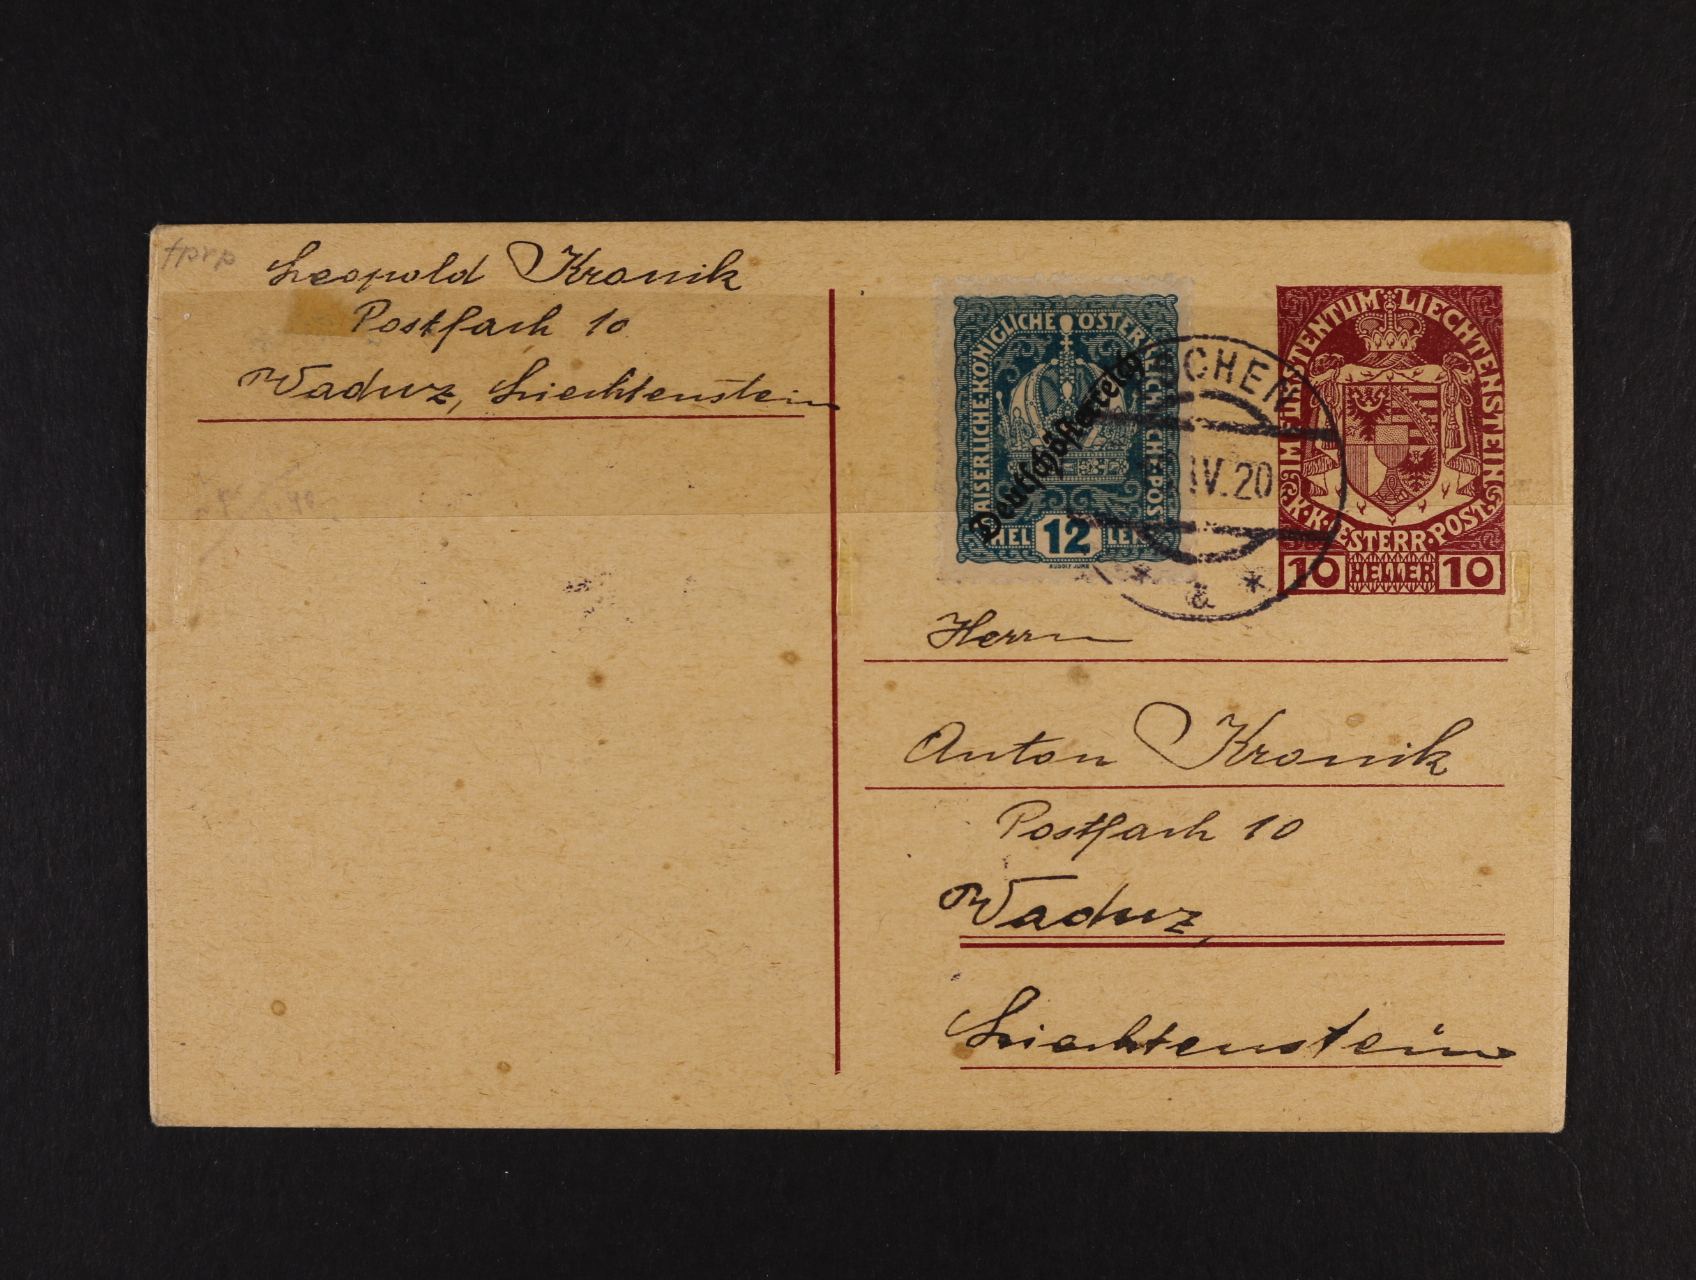 Leopold Kronik
Postfach 10
Waduz, Liechtenstein
KAISERLICHE·KÖNIGLICHE ÖSTERREICHISCHE·POST
Deutschösterreich
HELLER
12
RUDOLF JUNK
IV.20
* a *
IM FÜRSTENTUM·LIECHTENSTEIN
K.K.ÖSTERR·POST
10 HELLER 10
Herrn
Anton Kronik
Postfach 10
Waduz,
Liechtenstein